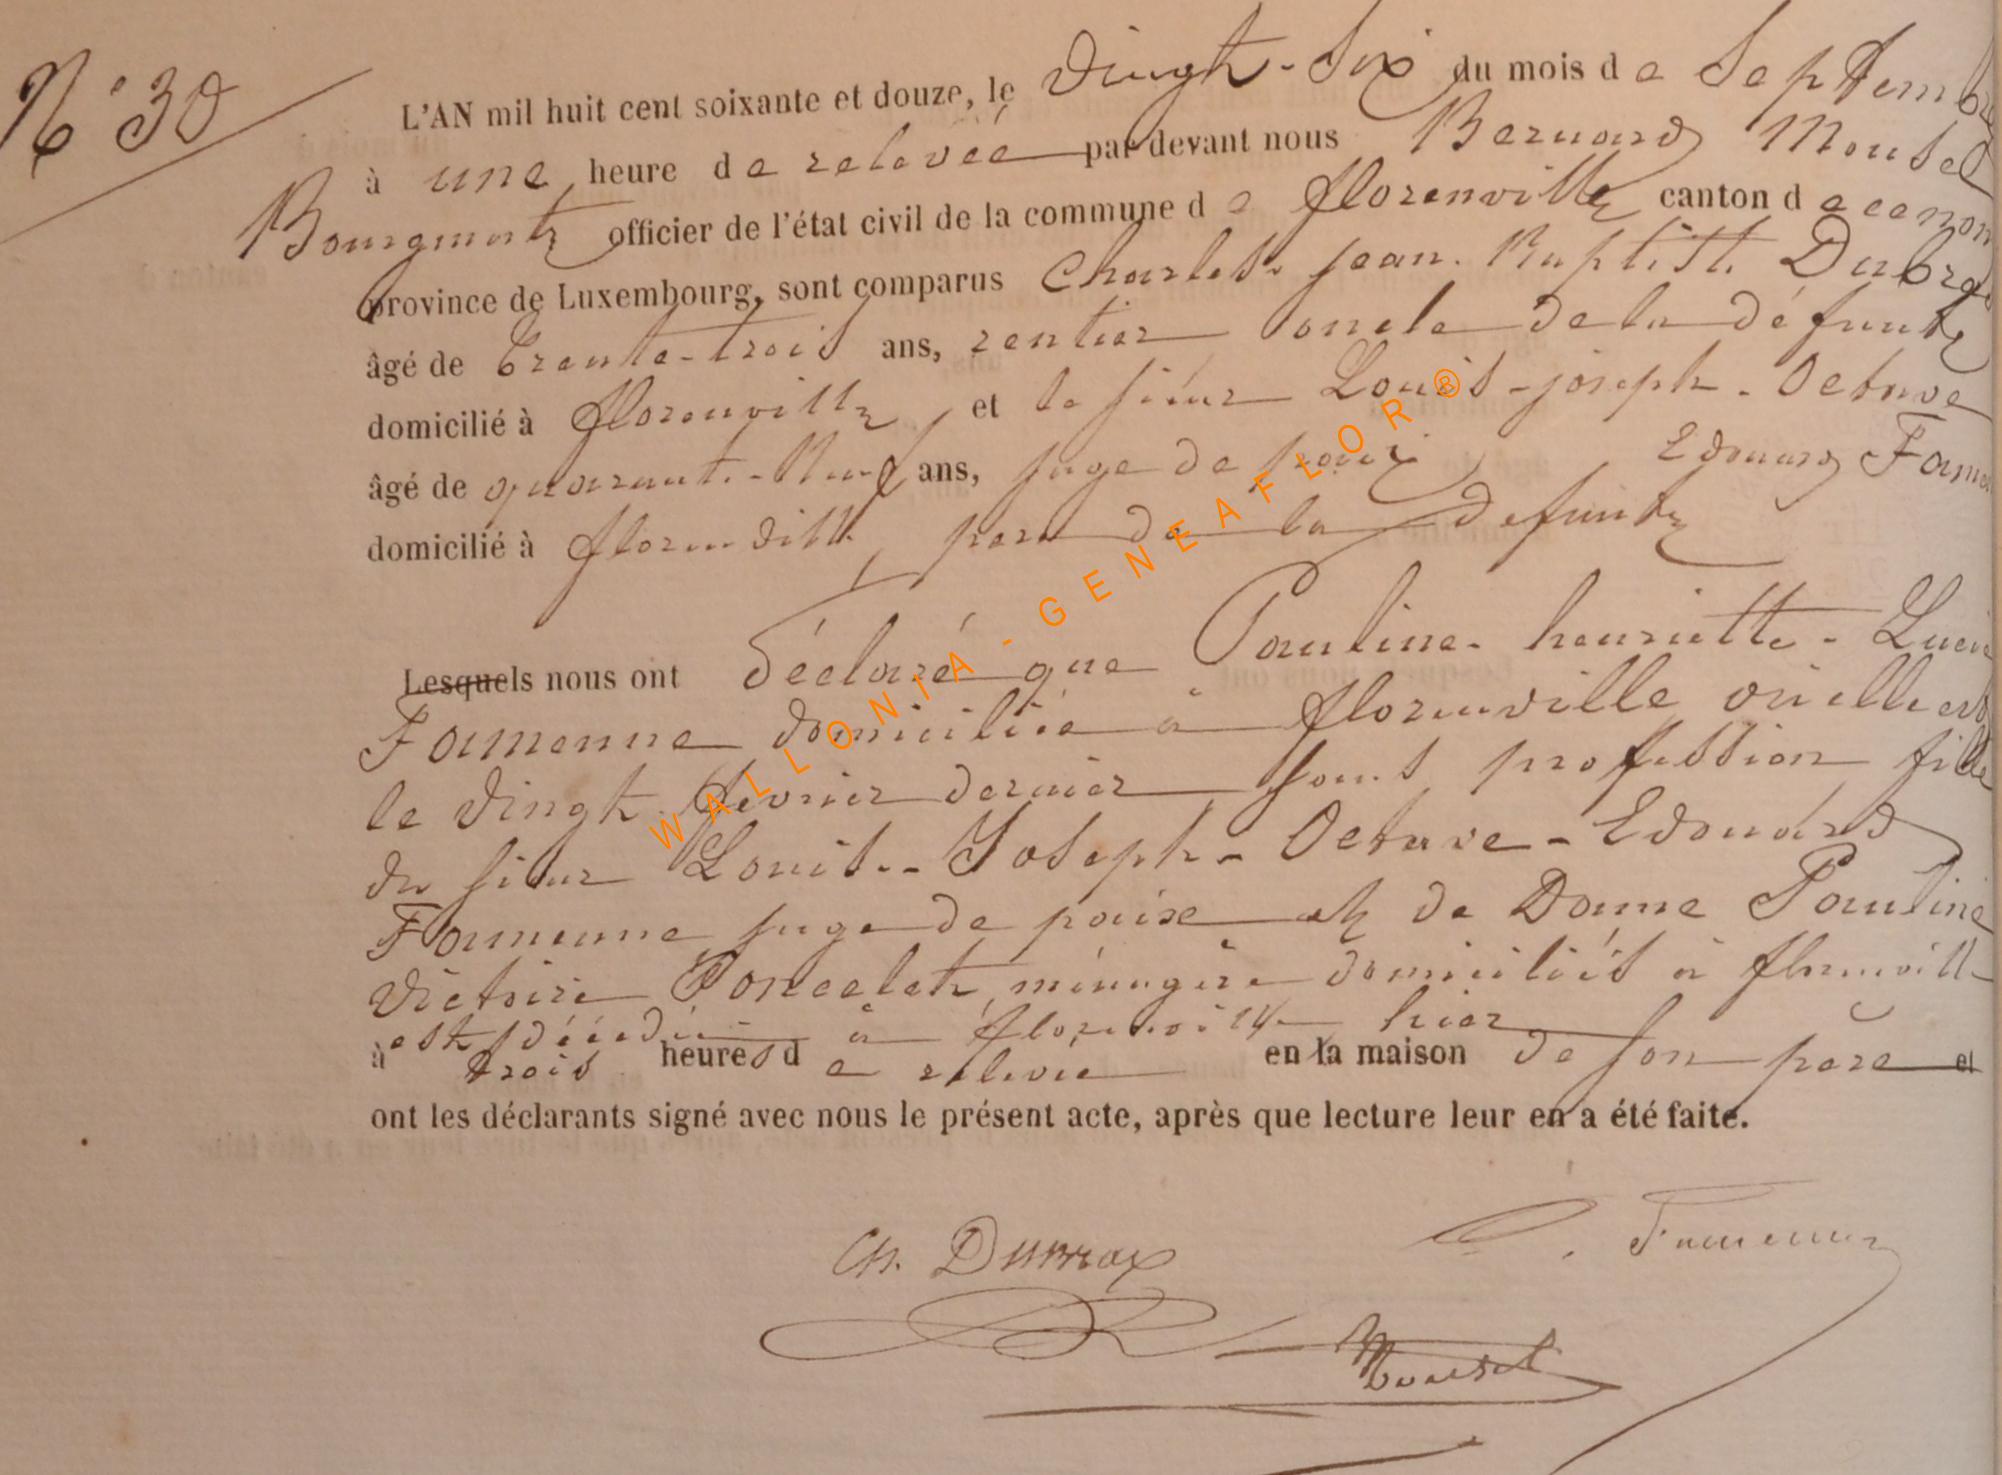 N° 30
L'AN mil huit cent soixante et douze, le vingt-six du mois de Septembre
à une heure de relevée par devant nous Bernard Mousel
Bourgmestre officier de l'état civil de la commune de florenville canton de
province de Luxembourg, sont comparus Charles Jean Baptiste
âgé de trente-trois ans, rentier oncle de la défunte
domicilié à florenville, et le sieur Louis-joseph-Octave
Edouard
âgé de quarante-neuf ans, juge de paix,
domicilié à florenville, père de la defunte
Lesquels nous ont déclaré que Pauline-henriette-Lucie
Famenne domiciliée à florenville où elle est
le vingt fevrier dernier sans profession fille
du sieur Louis-Joseph-Octave-Edouard
Famenne juge de paix et de Dame Pauline
Victoire Poncelet, ménagère domiciliés à florenville
est décédée à florenville hier
à trois heures de relevée en la maison de son père et
ont les déclarants signé avec nous le présent acte, après que lecture leur en a été faite.
Famenne
Ch. Dubray
Mousel
WALLONIA-GENEAFLOR®